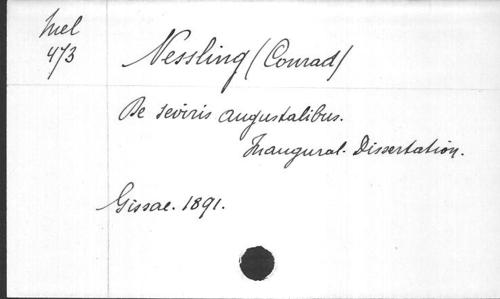 Mel
473
Nessling (Conrad)
De seviris augustalibus.
Inaugural-Dissertation.
Gissae. 1891.